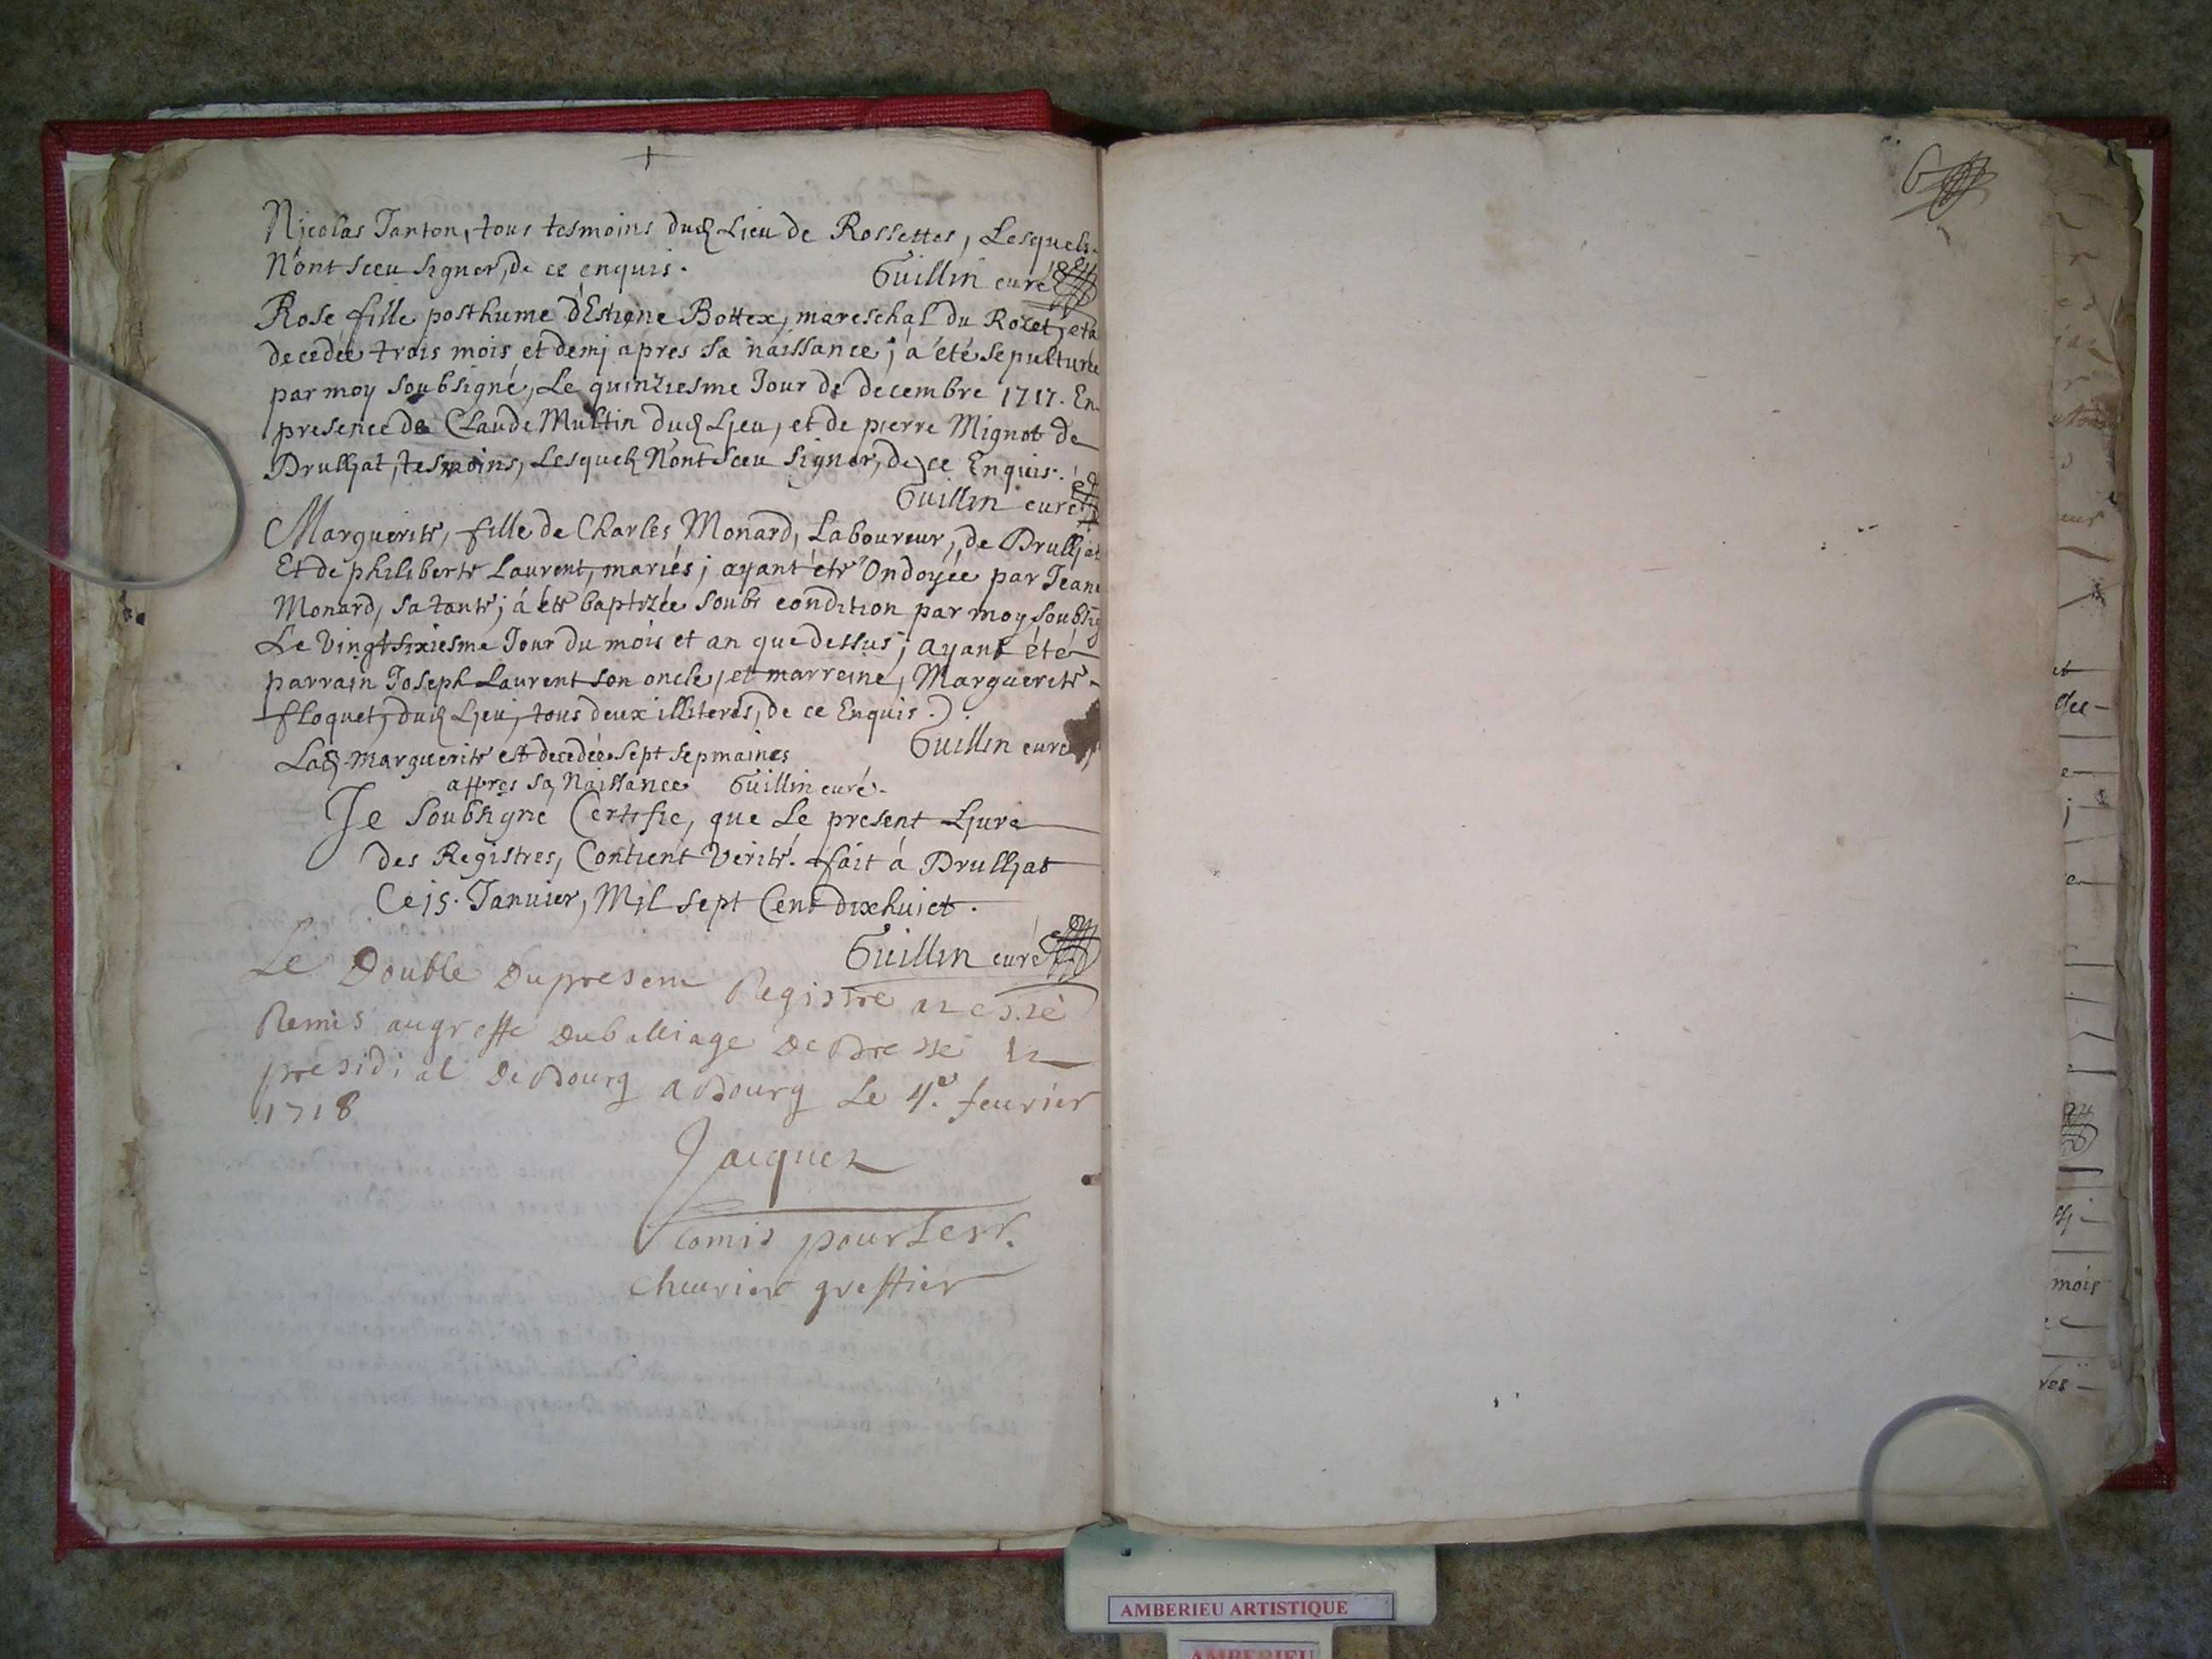 Nicolas Janton, tous tesmoins dud Lieu de Rossettes, Lesquels
N'ont sceu signer, de ce enquis.
Guillin curé
Rose fille posthume d'Estiene Bottex, mareschal du Rozet, eta
decedée trois mois et demj apres sa naissance; à été sepulturée
par moy soubsigné, Le quinziesme Jour de decembre 1717. En
presence de Claude Multin dud Ljeu, et de pierre Mignot de
Drulljat, tesmoins, Lesquels N'ont sceu signer, de ce Enquis.
Guillin curé
Marguerite, fille de Charles Monard, Laboureur, de Drulljat
Et de philiberte Laurent, mariés; ayant été Ondoyée par Jeane
Monard, sa tante; à été baptizée soubs condition par moy soubsig
Le vingtsixiesme Jour du mois et an que dessus; ayant été
parrain Joseph Laurent son oncle, et marreine, Marguerite
floquet, dud Ljeu, tous deux illiterés, de ce Enquis.
Guillin curé
Lad Marguerite est decedée sept sepmaines
appres sa Naissance Guillin curé.
Je soubsigné Certifie, que Le present Ljure
des Registres, Contient verité. fait à Drulljat
Ce 15. Januier, Mjl sept Cent dixhuict.
Guillin curé
Le Double Du present Registre a esté
Remis au greffe Du balliage De Bresse
presidial De Bourg a Bourg Le 4.e feurier
1718
Jacquet
Comis pour Le sr.
Cheurier greffier
6
mois
AMBERIEU ARTISTIQUE
AMBERIEU